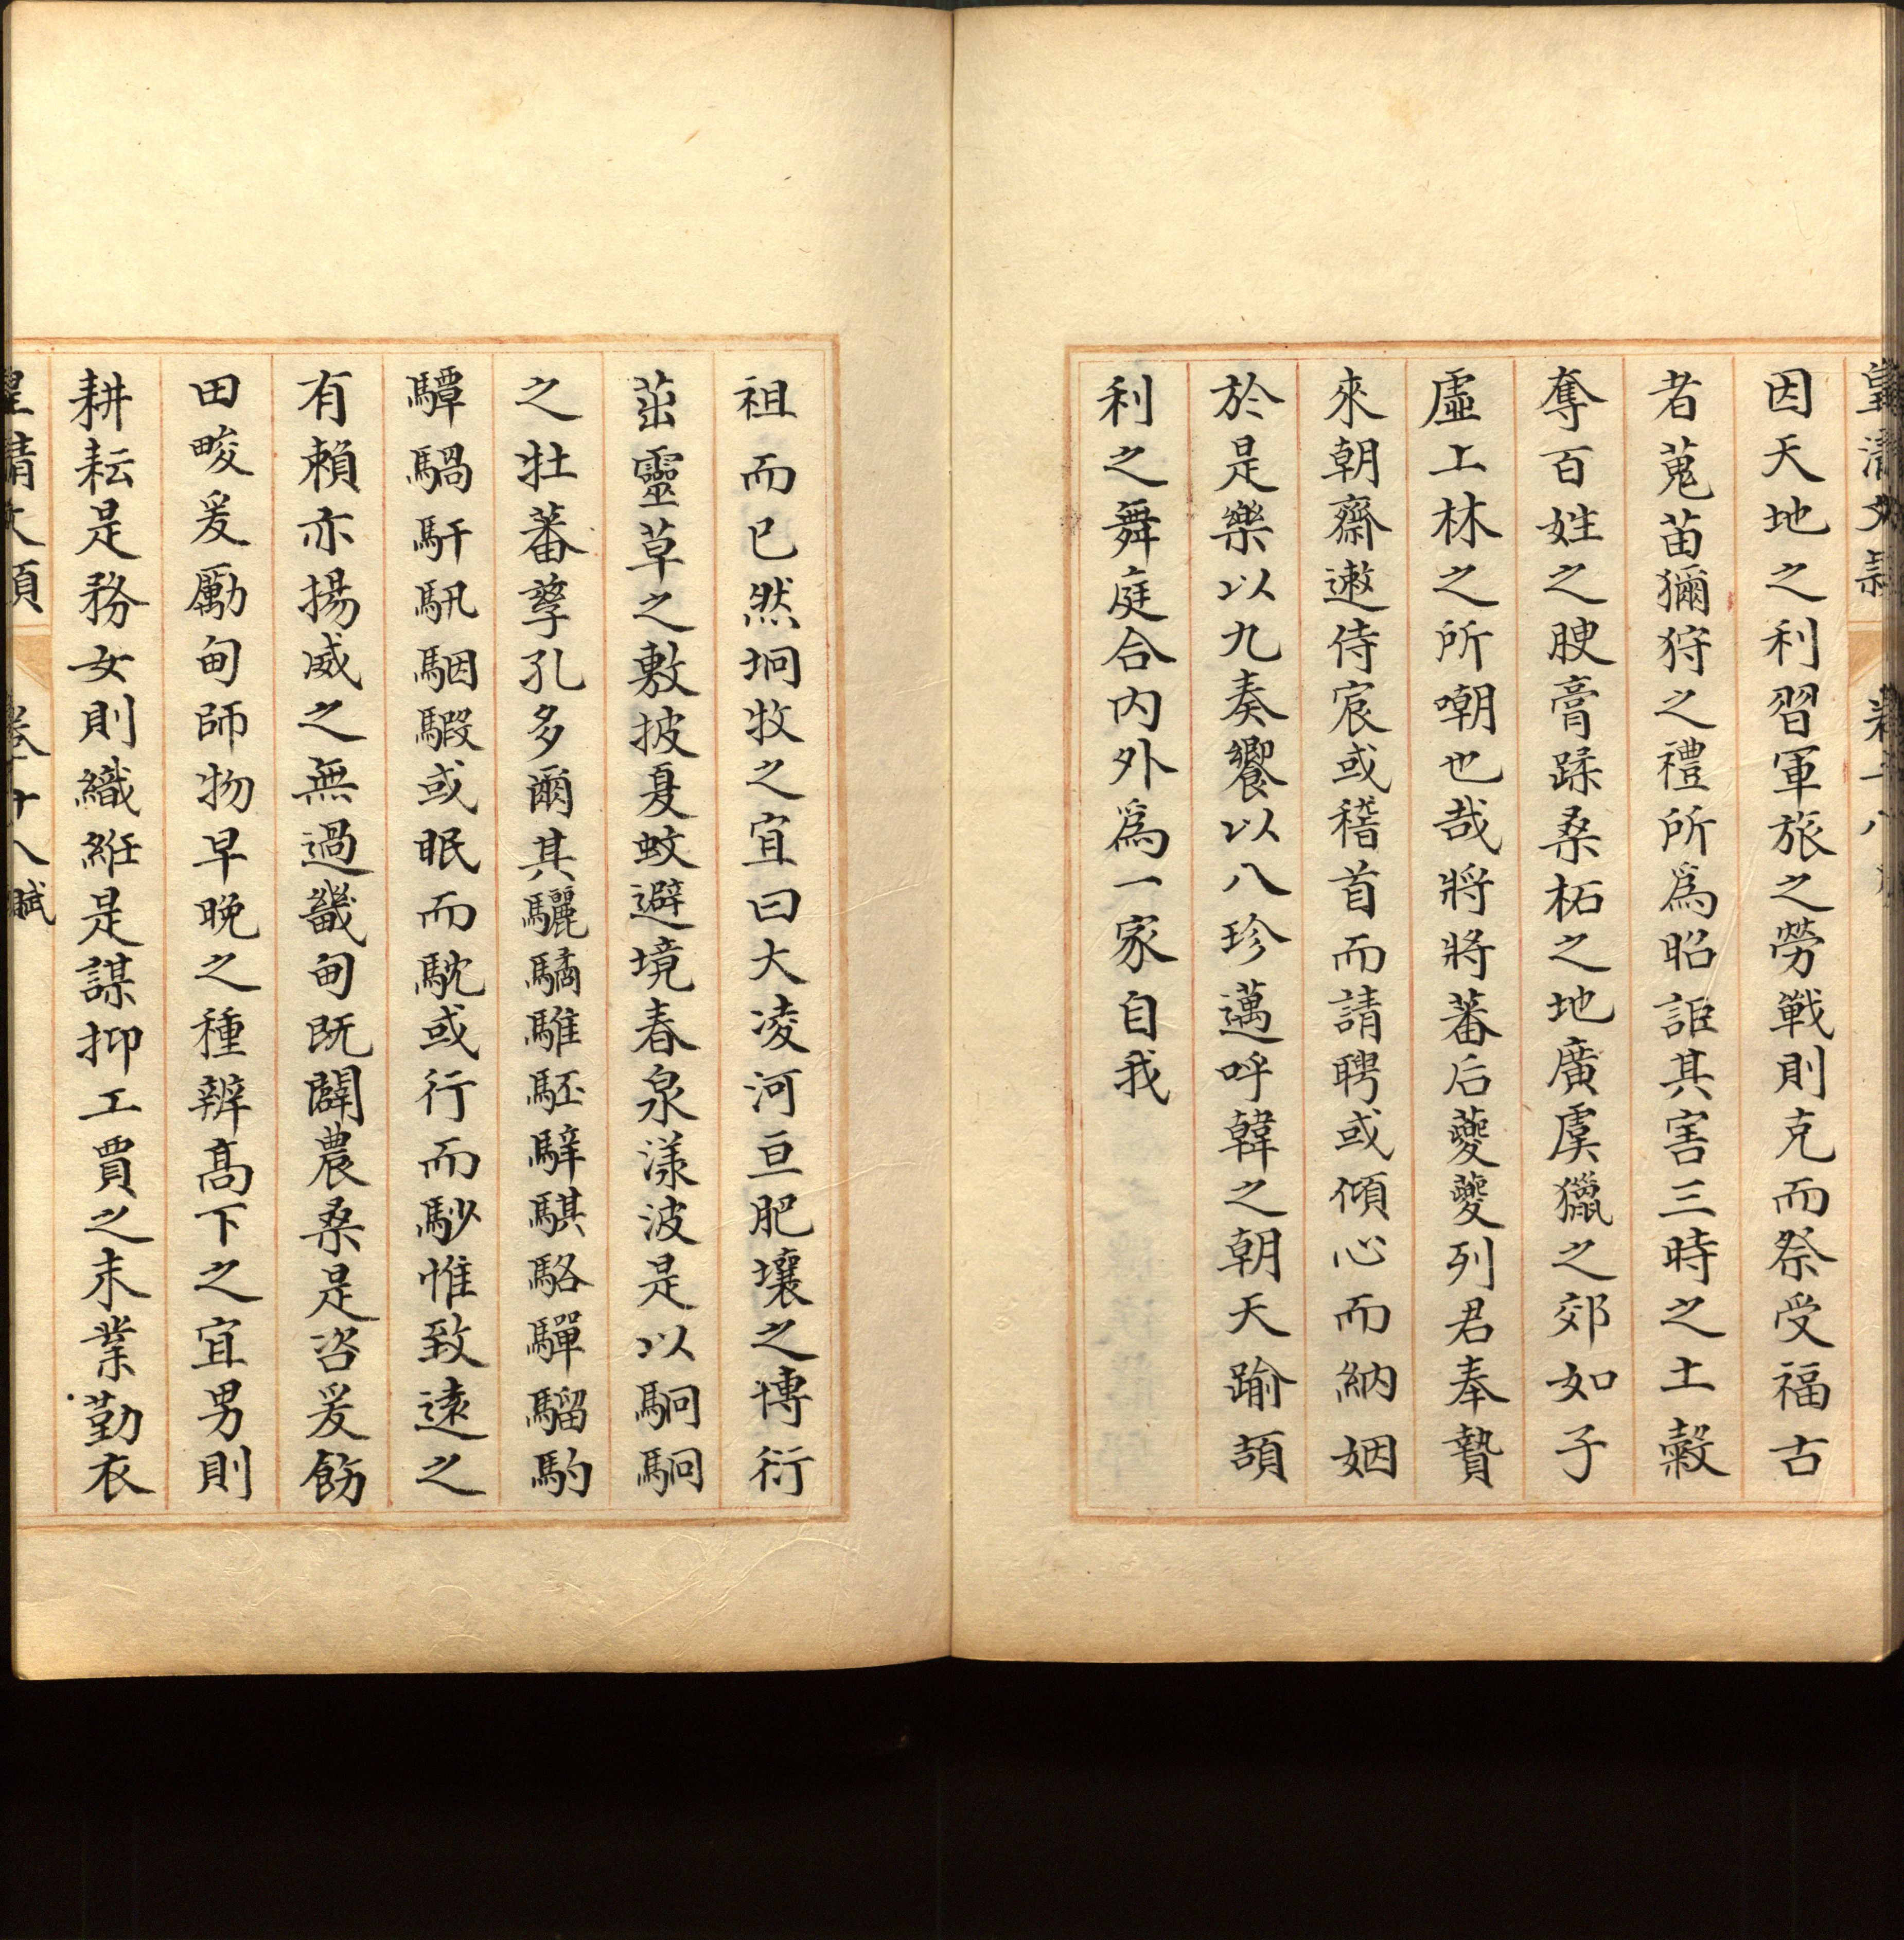 皇清文潁 卷十八
因天地之利習軍旅之勞戰則克而祭受福古
者蒐苗獮狩之禮所爲昭詎其害三時之土穀
奪百姓之腴膏蹂桑柘之地廣虞獵之郊如子
虛上林之所嘲也哉將將蕃后夔夔列君奉贄
來朝齋遬侍宸或稽首而請聘或傾心而納姻
於是樂以九奏饗以八珍邁呼韓之朝天踰頡
利之舞庭合內外爲一家自我
祖而已然坰牧之宜曰大凌河亘肥壤之博衍
茁靈草之敷披夏蚊避境春泉漾波是以駉駉
之牡蕃孳孔多爾其驪驈騅駓騂騏駱驒騮馰
驔騧馯馹駰騢或眠而馾或行而䮚惟致遠之
有賴亦揚威之無過畿甸既闢農桑是咨爰飭
田畯爰勵甸師物早晚之種辨高下之宜男則
耕耘是務女則織絍是謀抑工賈之末業勤衣
皇清文潁 卷十八 賦